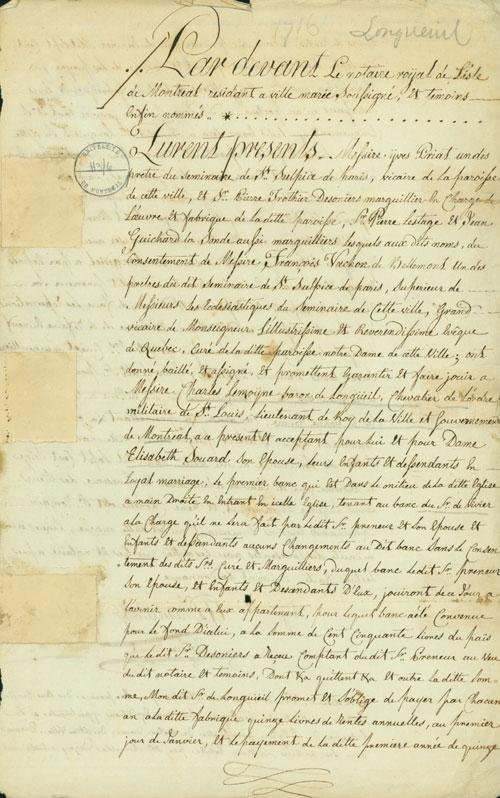 1716
Longueuil
Par devant Le notaire royal de L'isle
de Montreal residant a ville marie Soussigné, et temoins
Enfin nommés. * . . . . . . . . . . . . . . . . . . . . . . . .
furent presents. Messire yves Priat un des
prêtre du Seminaire de St. Sulpice de paris, vicaire de la paroisse
de cette ville, et Sr. Pierre Trothier Desoniers marguillier En Charge de
L'œuvre et fabrique de la ditte paroisse, Srs Pierre Lestage et Jean
Guichard la Sonde aussi marguilliers lesquels aux Dits noms, du
Consentement de Messire François Vachon de Bellemont Un des
pretres du dit Seminaire de St. Sulpice de paris, Superieur de
Messieurs les Ecclesiastiques du Seminaire de Cette ville, Grand
vicaire de Monseigneur L'illustrissime Et Reverendissime Evêque
de Quebec, Curé de la ditte paroisse notre Dame de cette Ville; ont
donné, baillé, et assigné, et promettent Garantir et faire jouir a
Messire Charles Lemoyne baron de Longueil, Chevalier de L'ordre
militaire de St. Louis, Lieutenant de Roy de la Ville et Gouvernement
de Montreal, a ce present et acceptant pour lui et pour Dame
Elisabeth Souard son Epouse, leurs Enfants et dessendants En
Loyal mariage, le premier banc qui Est Dans le milieu de la ditte Eglise
a main Droite En Entrant En icelle Eglise, tenant au banc du Sr. de Vivier
a la Charge qu'il ne Sera fait par le dit Sr. preneur Et Son Epouse et
Enfants Et dessandants aucuns Changements au Dit banc Sans le Consen
tement des dits Srs Curé et Marguilliers, duquel banc le dit Sr. preneur
Son Epouse, et Enfants et Descendants D'Eux, jouiront de ce Jour a
l'avenir comme a Eux appartenant, pour lequel banc a été Convenue
pour le fond D'icelui, a la Somme de Cent Cinquante Livres du païs
que le dit Sr. Desoniers a Recue Comptant du dit Sr. Preneur au Vüe
du dit notaire et temoins, Dont Et quittent Et outre la ditte Som-
me, Mon dit Sr. de Longueil promet et S'oblige de payer par Chacun
an a la ditte fabrique quinze livres de Rentes annuelles, au premier
jour de Janvier, et le payement de la ditte premiere année de quinze